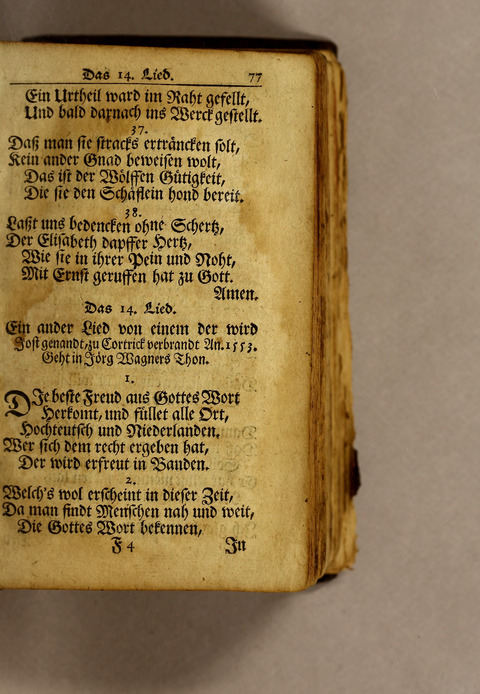 Das 14. Lied. 77
Ein Urtheil ward im Raht gefellt,
Und bald darnach ins Werck gestellt.
37.
Daß man sie stracks erträncken solt,
Kein ander Gnad beweisen wolt,
Das ist der Wölffen Gütigkeit,
Die sie den Schäflein hond bereit.
38.
Laßt uns bedencken ohne Schertz,
Der Elisabeth dapffer Hertz,
Wie sie in ihrer Pein und Noht,
Mit Ernst geruffen hat zu Gott.
Amen.
Das 14. Lied.
Ein ander Lied von einem der wird
Jost genandt, zu Cortrick verbrandt An. 1553.
Geht in Jörg Wagners Thon.
1.
DJe beste Freud aus Gottes Wort
Herkomt, und füllet alle Ort,
Hochteutsch und Niederlanden.
Wer sich dem recht ergeben hat,
Der wird erfreut in Banden.
2.
Welch's wol erscheint in dieser Zeit,
Da man findt Menschen nah und weit,
Die Gottes Wort bekennen,
F 4 Jn